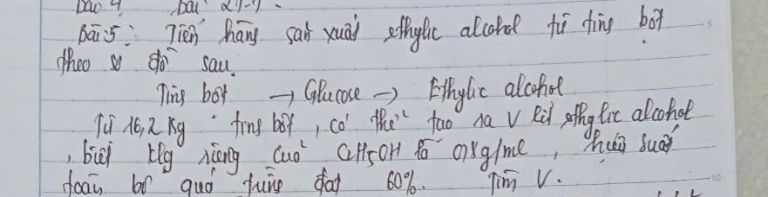 Bài 5: Tiến hàng sản xuất ethylic alcohol từ ting bột
theo sơ đồ sau.
Ting bột → Glucose → Ethylic alcohol
Từ 16,2 Kg ting bột, có thể tạo ra V lít ethylic alcohol
, biết klg riêng cuả C2H5OH là 0,8g/ml, hiệu suất
toàn bộ quá trình đạt 60%. Tìm V.